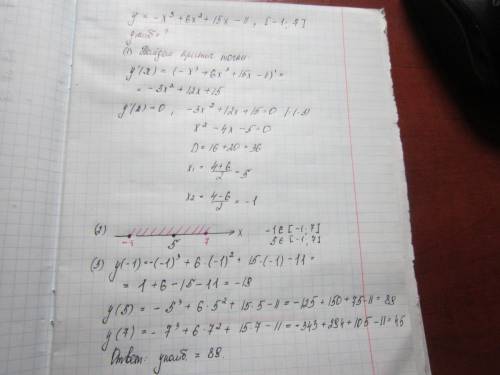 y = -x³ + 6x² + 15x - 11, [-1, 7]
yнаиб - ?
(1) Найдем критич. точки
y'(x) = (-x³ + 6x² + 15x - 11)' =
= -3x² + 12x + 15
y'(x) = 0, -3x² + 12x + 15 = 0 /(-3)
x² - 4x - 5 = 0
D = 16 + 20 = 36
x₁ = (4+6)/2 = 5
x₂ = (4-6)/2 = -1
(2) -1 5 7 x -1 ∈ [-1, 7]
5 ∈ [-1, 7]
(3) y(-1) = -(-1)³ + 6·(-1)² + 15·(-1) - 11 =
= 1 + 6 - 15 - 11 = -19
y(5) = -5³ + 6·5² + 15·5 - 11 = -125 + 150 + 75 - 11 = 89
y(7) = -7³ + 6·7² + 15·7 - 11 = -343 + 294 + 105 - 11 = 45
Ответ: yнаиб. = 89.